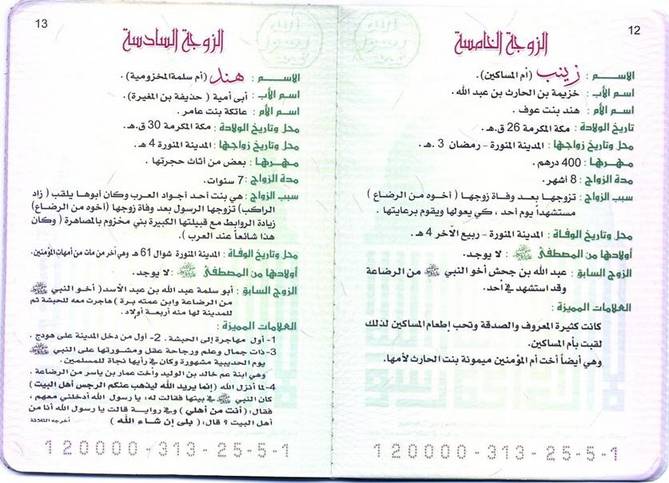 12
الزوجة الخامسة
الاسـم : زينب (أم المساكين).
اسم الأب : خزيمة بن الحارث بن عبد الله.
اسم الأم : هند بنت عوف.
تاريخ الولادة : مكة المكرمة 26 ق.هـ.
محل وتاريخ زواجها : المدينة المنورة - رمضان 3 هـ.
مهرها : 400 درهم.
مدة الزواج : 8 اشهر.
سبب الزواج : تزوجها بعد وفاة زوجها ( أخوه من الرضاع )
مستشهداً يوم أحد , كي يعولها ويقوم برعايتها .
محل وتاريخ الوفاة : المدينة المنورة - ربيع الآخر 4 هـ.
أولادها من المصطفى ﷺ : لا يوجد.
الزوج السابق : عبد الله بن جحش أخو النبي ﷺ من الرضاعة
وقد استشهد في أحد.
العلامات المميزة :
كانت كثيرة المعروف والصدقة وتحب إطعام المساكين لذلك
لقبت بأم المساكين.
وهي أيضاً أخت أم المؤمنين ميمونة بنت الحارث لأمها.
120000-313-25-5-1
13
الزوجة السادسة
الاسـم : هند (أم سلمة المخزومية) .
اسم الأب : أبي أمية ( حذيفة بن المغيرة).
اسم الأم : عاتكة بنت عامر.
محل وتاريخ الولادة : مكة المكرمة 30 ق.هـ.
محل وتاريخ زواجها : المدينة المنورة 4 هـ.
مهرها : بعض من أثاث حجرتها .
مدة الزواج : 7 سنوات.
سبب الزواج : هي بنت أحد أجواد العرب وكان أبوها يلقب ( زاد
الراكب) تزوجها الرسول بعد وفاة زوجها (أخوه من الرضاع)
زيادة الروابط مع قبيلتها الكبيرة بني مخزوم بالمصاهرة ( وكان
هذا شائعاً عند العرب ).
محل وتاريخ الوفاة : المدينة المنورة شوال 61 هـ وهي آخر من مات من أمهات المؤمنين.
أولادها من المصطفى ﷺ : لا يوجد.
الزوج السابق : أبو سلمة عبد الله بن عبد الأسد( أخو النبي ﷺ
من الرضاعة وابن عمته برة ) هاجرت معه للحبشة ثم
للمدينة لها منه أربعة أولاد.
العلامات المميزة :
1- أول مهاجرة إلى الحبشة . 2- أول من دخل المدينة على هودج .
3- ذات جمال وعلم ورجاحة عقل ومشورتها على النبي ﷺ
يوم الحديبية مشهورة وكان في رأيها نجاة للمسلمين.
وهي ابنة عم خالد بن الوليد وأخت عمار بن ياسر من الرضاعة .
4- لما أنزل الله (إنما يريد الله ليذهب عنكم الرجس أهل البيت )
كان النبي ﷺ في بيتها فقالت له ، يا رسول الله أدخلني معهم ،
فقال ، ( أنت من أهلي ) وفي رواية قالت يا رسول الله أنا من
أهل البيت ؟ قال ، ( بلى إن شاء الله )
120000-313-25-5-1